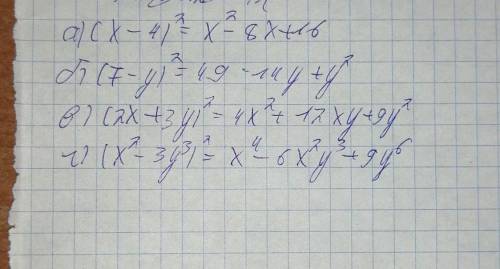 а) (x-4)² = x² - 8x + 16
б) (7-y)² = 49 - 14y + y²
в) (2x+3y)² = 4x² + 12xy + 9y²
г) (x² - 3y³)² = x⁴ - 6x²y³ + 9y⁶